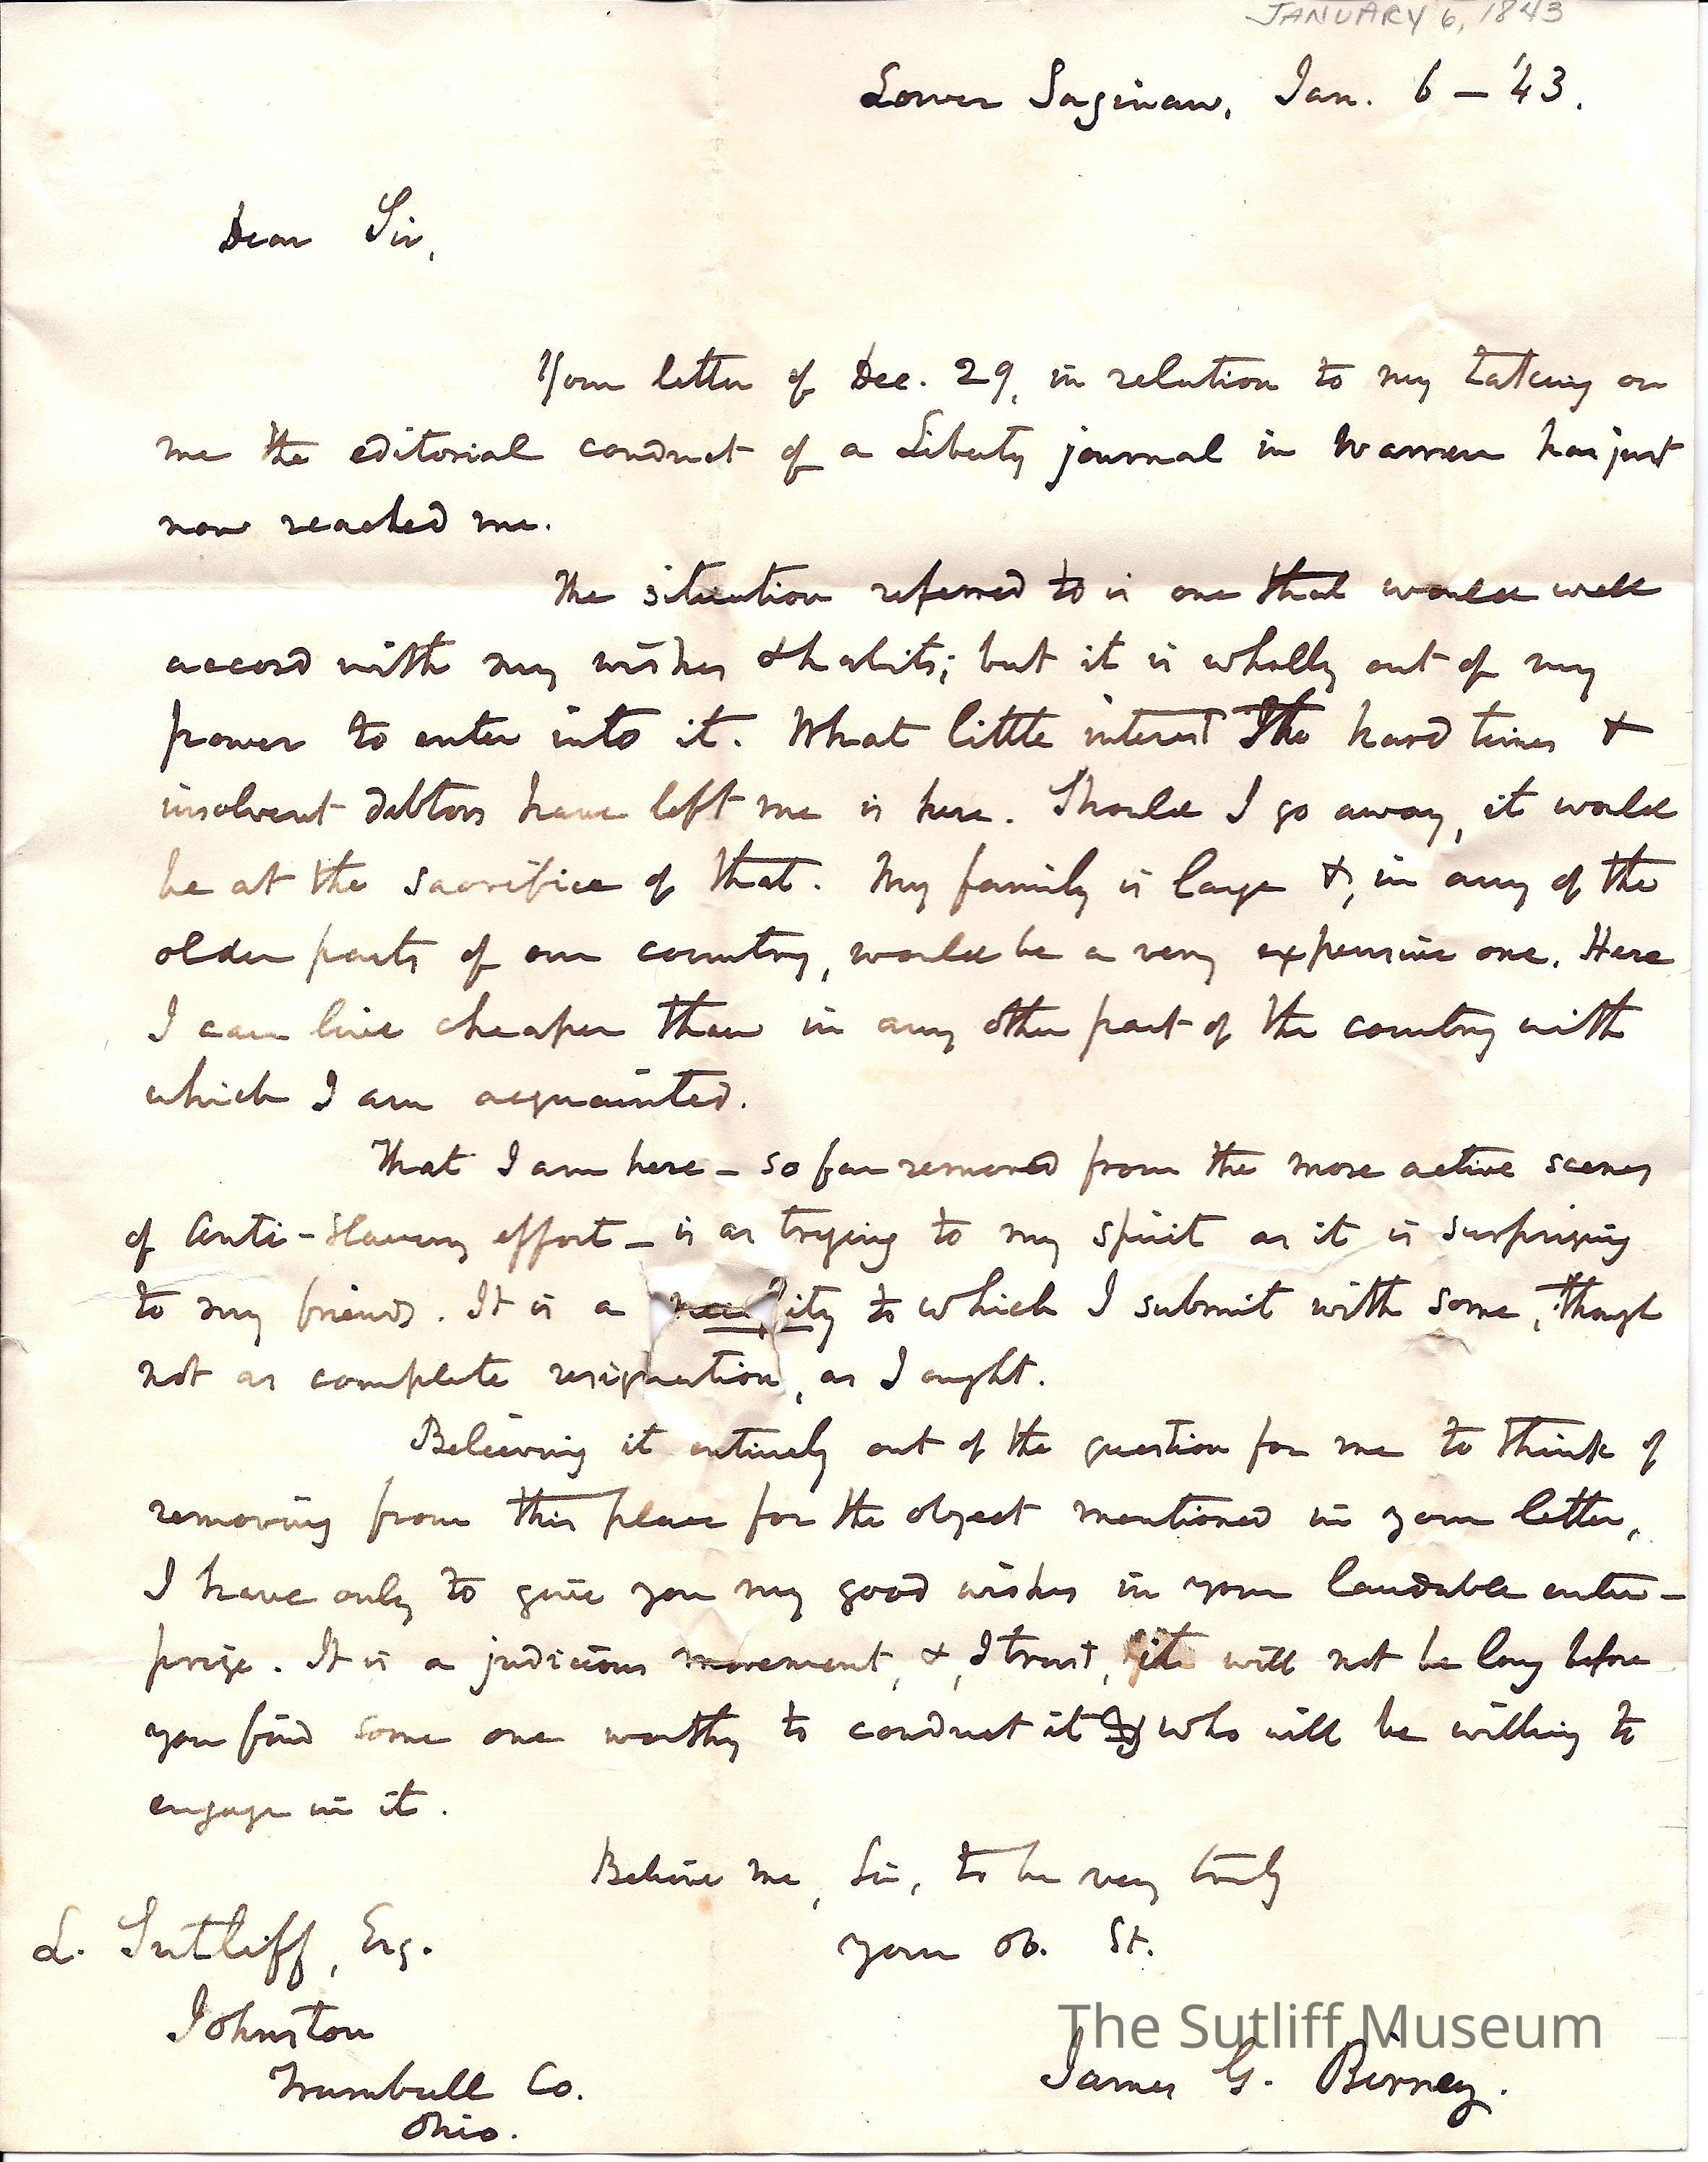 JANUARY 6, 1843
Lower Saginaw, Jan. 6 – '43.
Dear Sir,
Your letter of Dec. 29, in relation to my taking on
me the editorial conduct of a Liberty journal in Warren has just
now reached me.
The situation referred to is one that would well
accord with my wishes & habits; but it is wholly out of my
power to enter into it. What little interest the hard times &
insolvent debtors have left me is here. Should I go away, it would
be at the sacrifice of that. My family is large &, in any of the
older parts of our country, would be a very expensive one. Here
I can live cheaper than in any other part of the country with
which I am acquainted.
That I am here – so far removed from the more active scenes
of Anti-Slavery effort – is as trying to my spirit as it is surprizing
to my friends. It is a necessity to which I submit with some, though
not as complete resignation, as I ought.
Believing it entirely out of the question for me to think of
removing from this place for the object mentioned in your letter,
I have only to give you my good wishes in your laudable enter-
prize. It is a judicious movement, &, I trust, it will not be long before
you find some one worthy to conduct it who will be willing to
engage in it.
Believe me, Sir, to be very truly
your ob. St.
L. Sutliff, Esq.
Johnston
Trumbull Co.
Ohio.
The Sutliff Museum
James G. Birney.